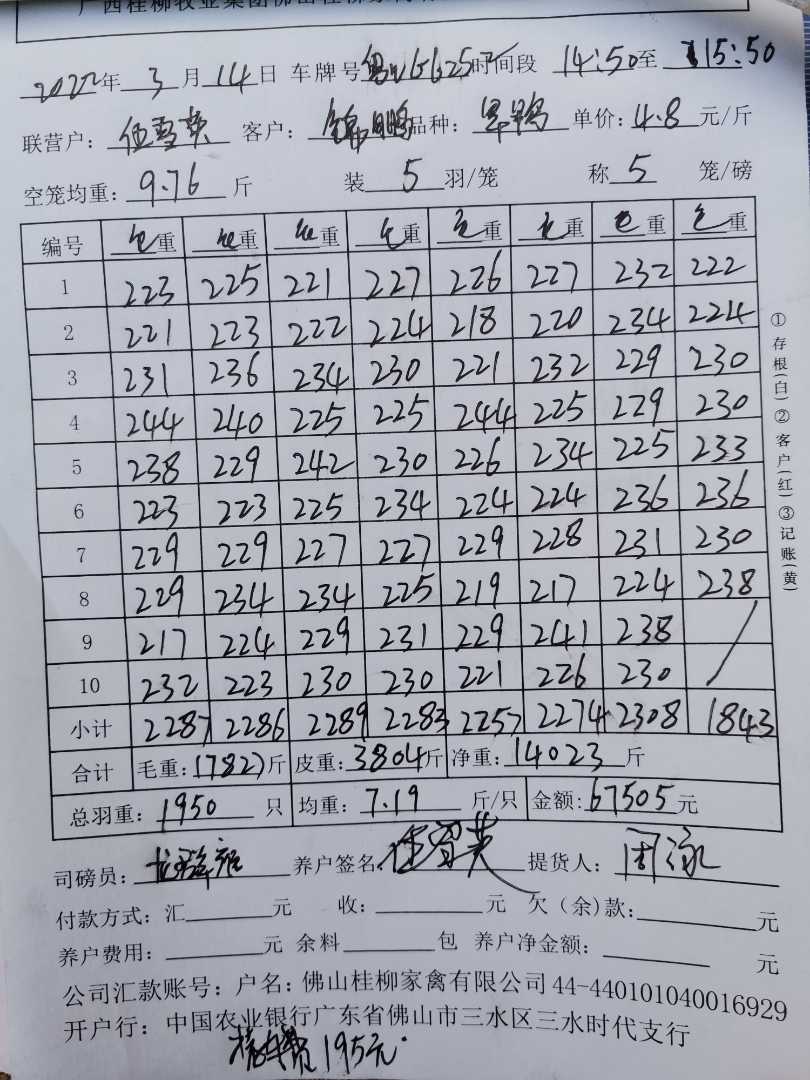 2022年 3 月 14 日 车牌号 时间段 14:50 至 15:50
联营户: 伍雪英 客户: 锦鹏 品种: 单价: 4.8 元/斤
空笼均重: 9.76 斤 装 5 羽/笼 称 5 笼/磅
编号 毛重 毛重 毛重 毛重 毛重 毛重 毛重 毛重
1 223 225 221 227 226 227 232 222
2 221 223 222 224 218 220 234 224
3 231 236 234 230 221 232 229 230
4 244 240 225 225 244 225 229 230
5 238 229 242 230 226 234 225 233
6 223 223 225 234 224 224 236 236
7 229 229 227 227 229 228 231 230
8 229 234 234 225 219 217 224 238
9 217 224 229 231 229 241 238
10 232 223 230 230 221 226 230
小计 2287 2286 2289 2283 2257 2274 2308 1843
合计 毛重: 17827 斤 皮重: 3804 斤 净重: 14023 斤
总羽重: 1950 只 均重: 7.19 斤/只 金额: 67505 元
司磅员: 养户签名 伍雪英 提货人: 周泳
付款方式: 汇 元 收: 元 欠(余)款: 元
养户费用: 元 余料 包 养户净金额: 元
公司汇款账号: 户名: 佛山桂柳家禽有限公司 44-440101040016929
开户行: 中国农业银行广东省佛山市三水区三水时代支行
费195元.
①存根(白)②客户(红)③记账(黄)